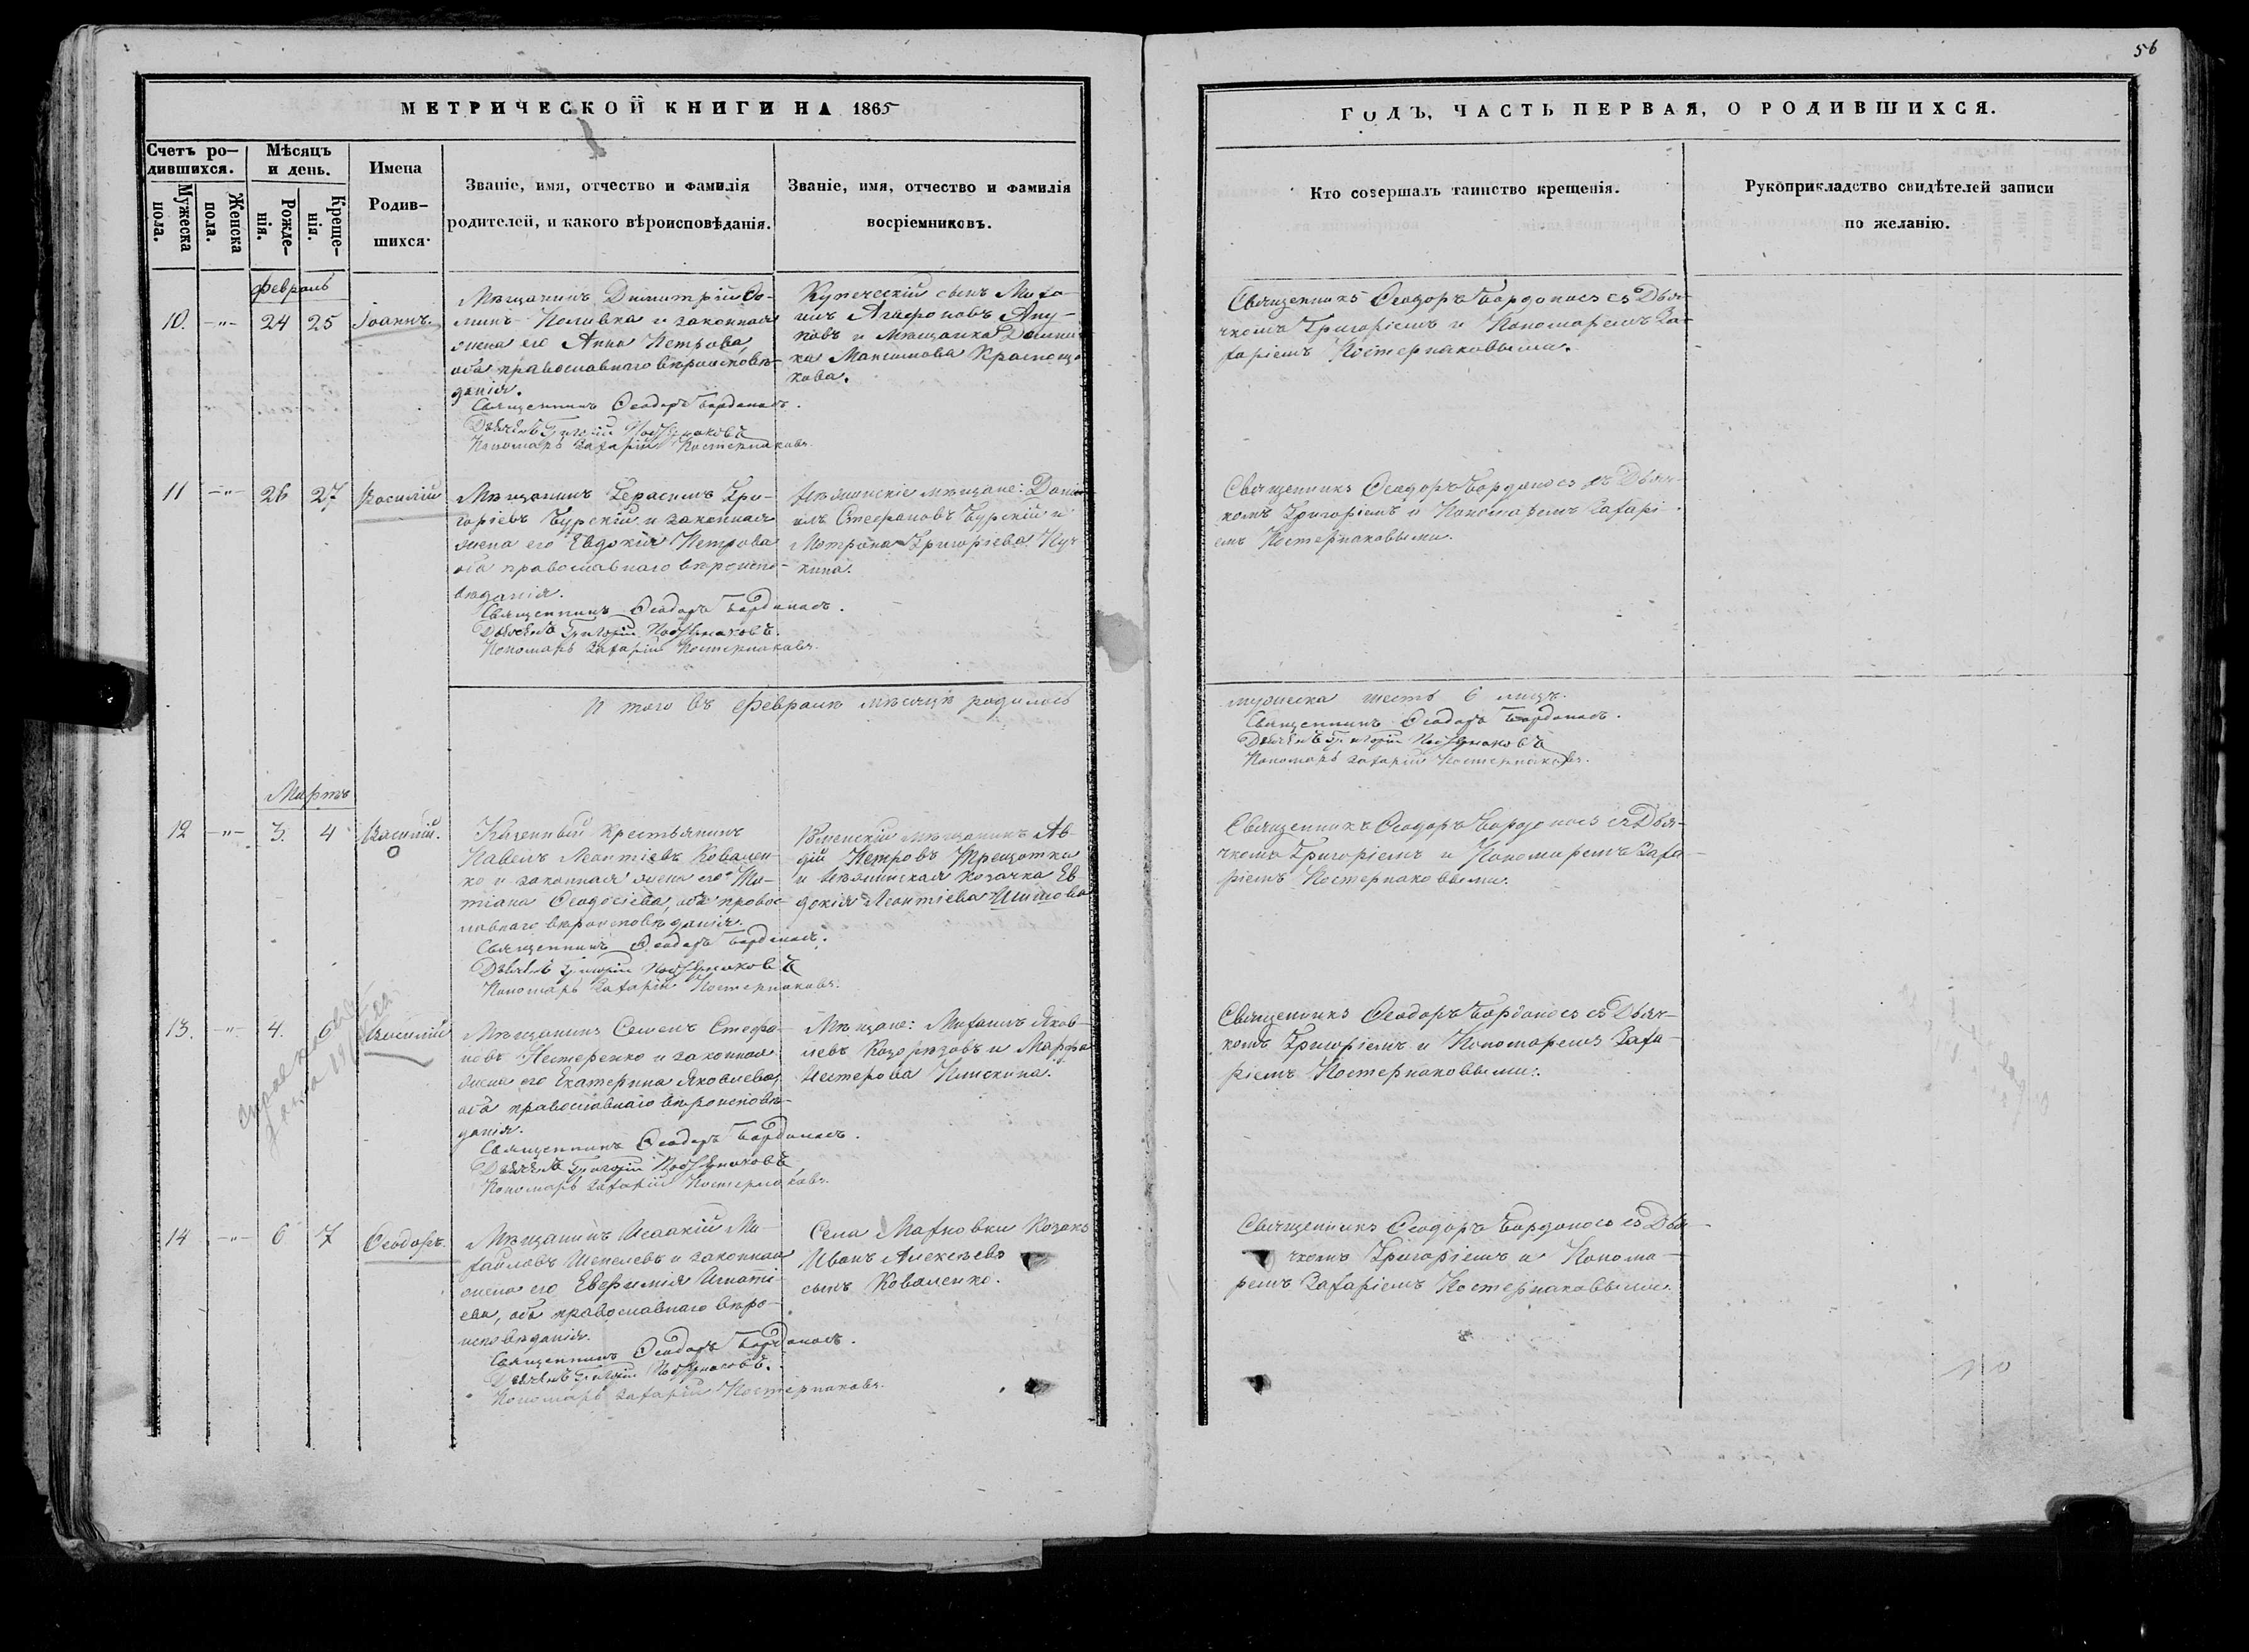 56
МЕТРИЧЕСКОЙ КНИГИ НА 1865
ГОДЪ, ЧАСТЬ ПЕРВАЯ, О РОДИВШИХСЯ.
Счетъ ро-
дившихся.
Мужеска
пола.
Женска
пола.
Мѣсяцъ
и день.
Рожде-
нія.
Креще-
нія.
Имена
Родив-
шихся.
Званіе, имя, отчество и фамилія
родителей, и какого вѣроисповѣданія.
Званіе, имя, отчество и фамилія
восріемниковъ.
Кто созершалъ таинство крещенія.
Рукоприкладство свидѣтелей записи
по желанію.
Февраль
10. -"- 24 25 Іоаннъ.
Мѣщанинъ Димитрій Ѳо-
минъ Поливка и законная
жена его Анна Петрова,
оба православнаго вѣроисповѣ-
данія.
Священникъ Ѳеодоръ Бордоносъ.
Дьячекъ Григорій
Пономарь Захарій Костерпаковъ.
Купеческій сынъ Миха-
илъ Агафоновъ
ковъ и Мѣщанка Домни-
ка Максимова Краснощо
кова.
Священникъ Ѳеодоръ Бордоносъ съ Дья-
чкомъ Григоріемъ и Пономаремъ За-
харіемъ Костерпаковыми.
11 -"- 26 27 Василій
Мѣщанинъ Герасимъ Гри-
горіевъ Бурскій и законная
жена его Евдокія Петрова
оба православнаго вѣроиспо-
вѣданія.
Священникъ Ѳеодоръ Бордоносъ.
Дьячекъ Григорій
Пономарь Захарій Костерпаковъ.
мѣщане: Дані
илъ Стефановъ Бурскій и
Мотрона Григоріева
кина.
Священникъ Ѳеодоръ Бордоносъ съ Дьяч-
комъ Григоріемъ и Пономаремъ Захарі-
емъ Костерпаковыми.
И того въ Февралѣ мѣсяцѣ родилось
мужеска шесть 6 лицъ.
Священникъ Ѳеодоръ Бордоносъ.
Дьячекъ Григорій
Пономарь Захарій Костерпаковъ.
Мартъ
12 -"- 3. 4 Василій.
Казенный Крестьянинъ
Павелъ Леонтіевъ Ковален-
ко и законная жена его Та-
тіана Ѳеодосіева, оба правос-
лавнаго вѣроисповѣданія.
Священникъ Ѳеодоръ Бордоносъ.
Дьячекъ Григорій
Пономарь Захарій Костерпаковъ.
мѣщанинъ Ав-
дій Петровъ Трещотка
и козачка Ев
докія Леонтіева
Священникъ Ѳеодоръ Бордоносъ съ Дья-
чкомъ Григоріемъ и Пономаремъ Заха-
ріемъ Костерпаковыми.
13. -"- 4. 6 Василій
Мѣщанинъ Семенъ Стефа-
новъ Нестеренко и законная
жена его Екатерина Яковлева,
оба православнаго вѣроисповѣ-
данія.
Священникъ Ѳеодоръ Бордоносъ.
Дьячекъ Григорій
Пономарь Захарій Костерпаковъ.
Мѣщане: Михаилъ Яков-
левъ Козорѣзовъ и Марфа
Нестерова
Священникъ Ѳеодоръ Бордоносъ съ Дьяч-
комъ Григоріемъ и Пономаремъ Заха-
ріемъ Костерпаковыми.
14 -"- 6 7 Ѳеодоръ.
Мѣщанинъ Исаакій Ми-
хайловъ Шепелевъ и законная
жена его Евфимія Игнаті
ева, оба православнаго вѣро-
исповѣданія.
Священникъ Ѳеодоръ Бордоносъ.
Дьячекъ Григорій
Пономарь Захарій Костерпаковъ.
Села Махновки Козакъ
Иванъ Алексѣевъ
сынъ Коваленко.
Священникъ Ѳеодоръ Бордоносъ съ Дья-
чкомъ Григоріемъ и Понома-
ремъ Захаріемъ Костерпаковыми.